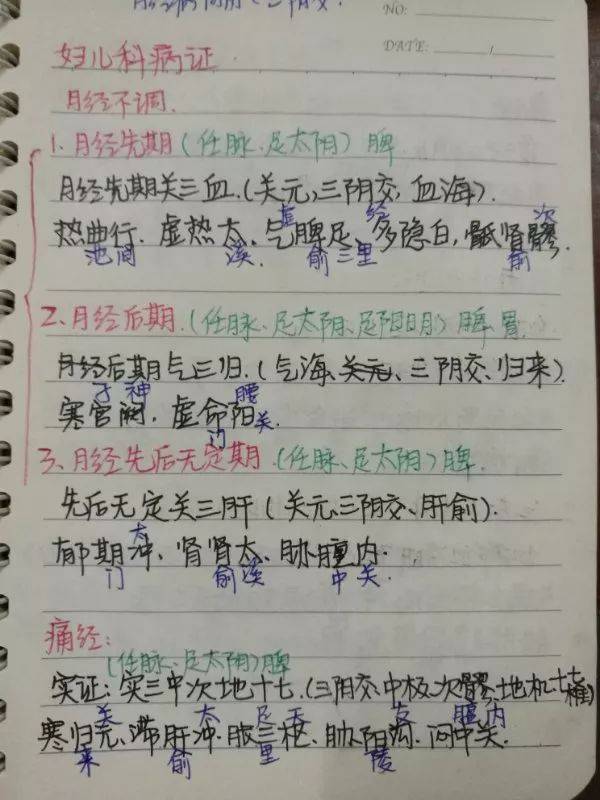 NO:
DATE:
妇儿科病证
月经不调.
1. 月经先期(任脉、足太阴) 脾
月经先期关三血.(关元,三阴交,血海).
虚 经 次
热曲行. 虚热太、气脾足、多隐白, 骶肾髎.
池间 溪. 俞三里 俞
2、月经后期.(任脉、足太阴、足阳明) 脾、胃.
月经后期气三归.(气海、关元、三阴交、归来).
子神 腰
寒宫阙. 虚命阳关.
门
3、月经先后无定期.(任脉、足太阴) 脾.
先后无定关三肝(关元、三阴交、肝俞).
太
郁期冲、肾肾太、胁膻内.
门 俞溪 中关.
痛经:
(任脉、足太阴)脾
实证: 实三中次地十七.(三阴交、中极、次髎、地机、十七椎)
关 太 足天 支 膻内
寒归元、滞肝冲. 胀三枢、胁阳沟. 闷中关.
来 俞 里 陵